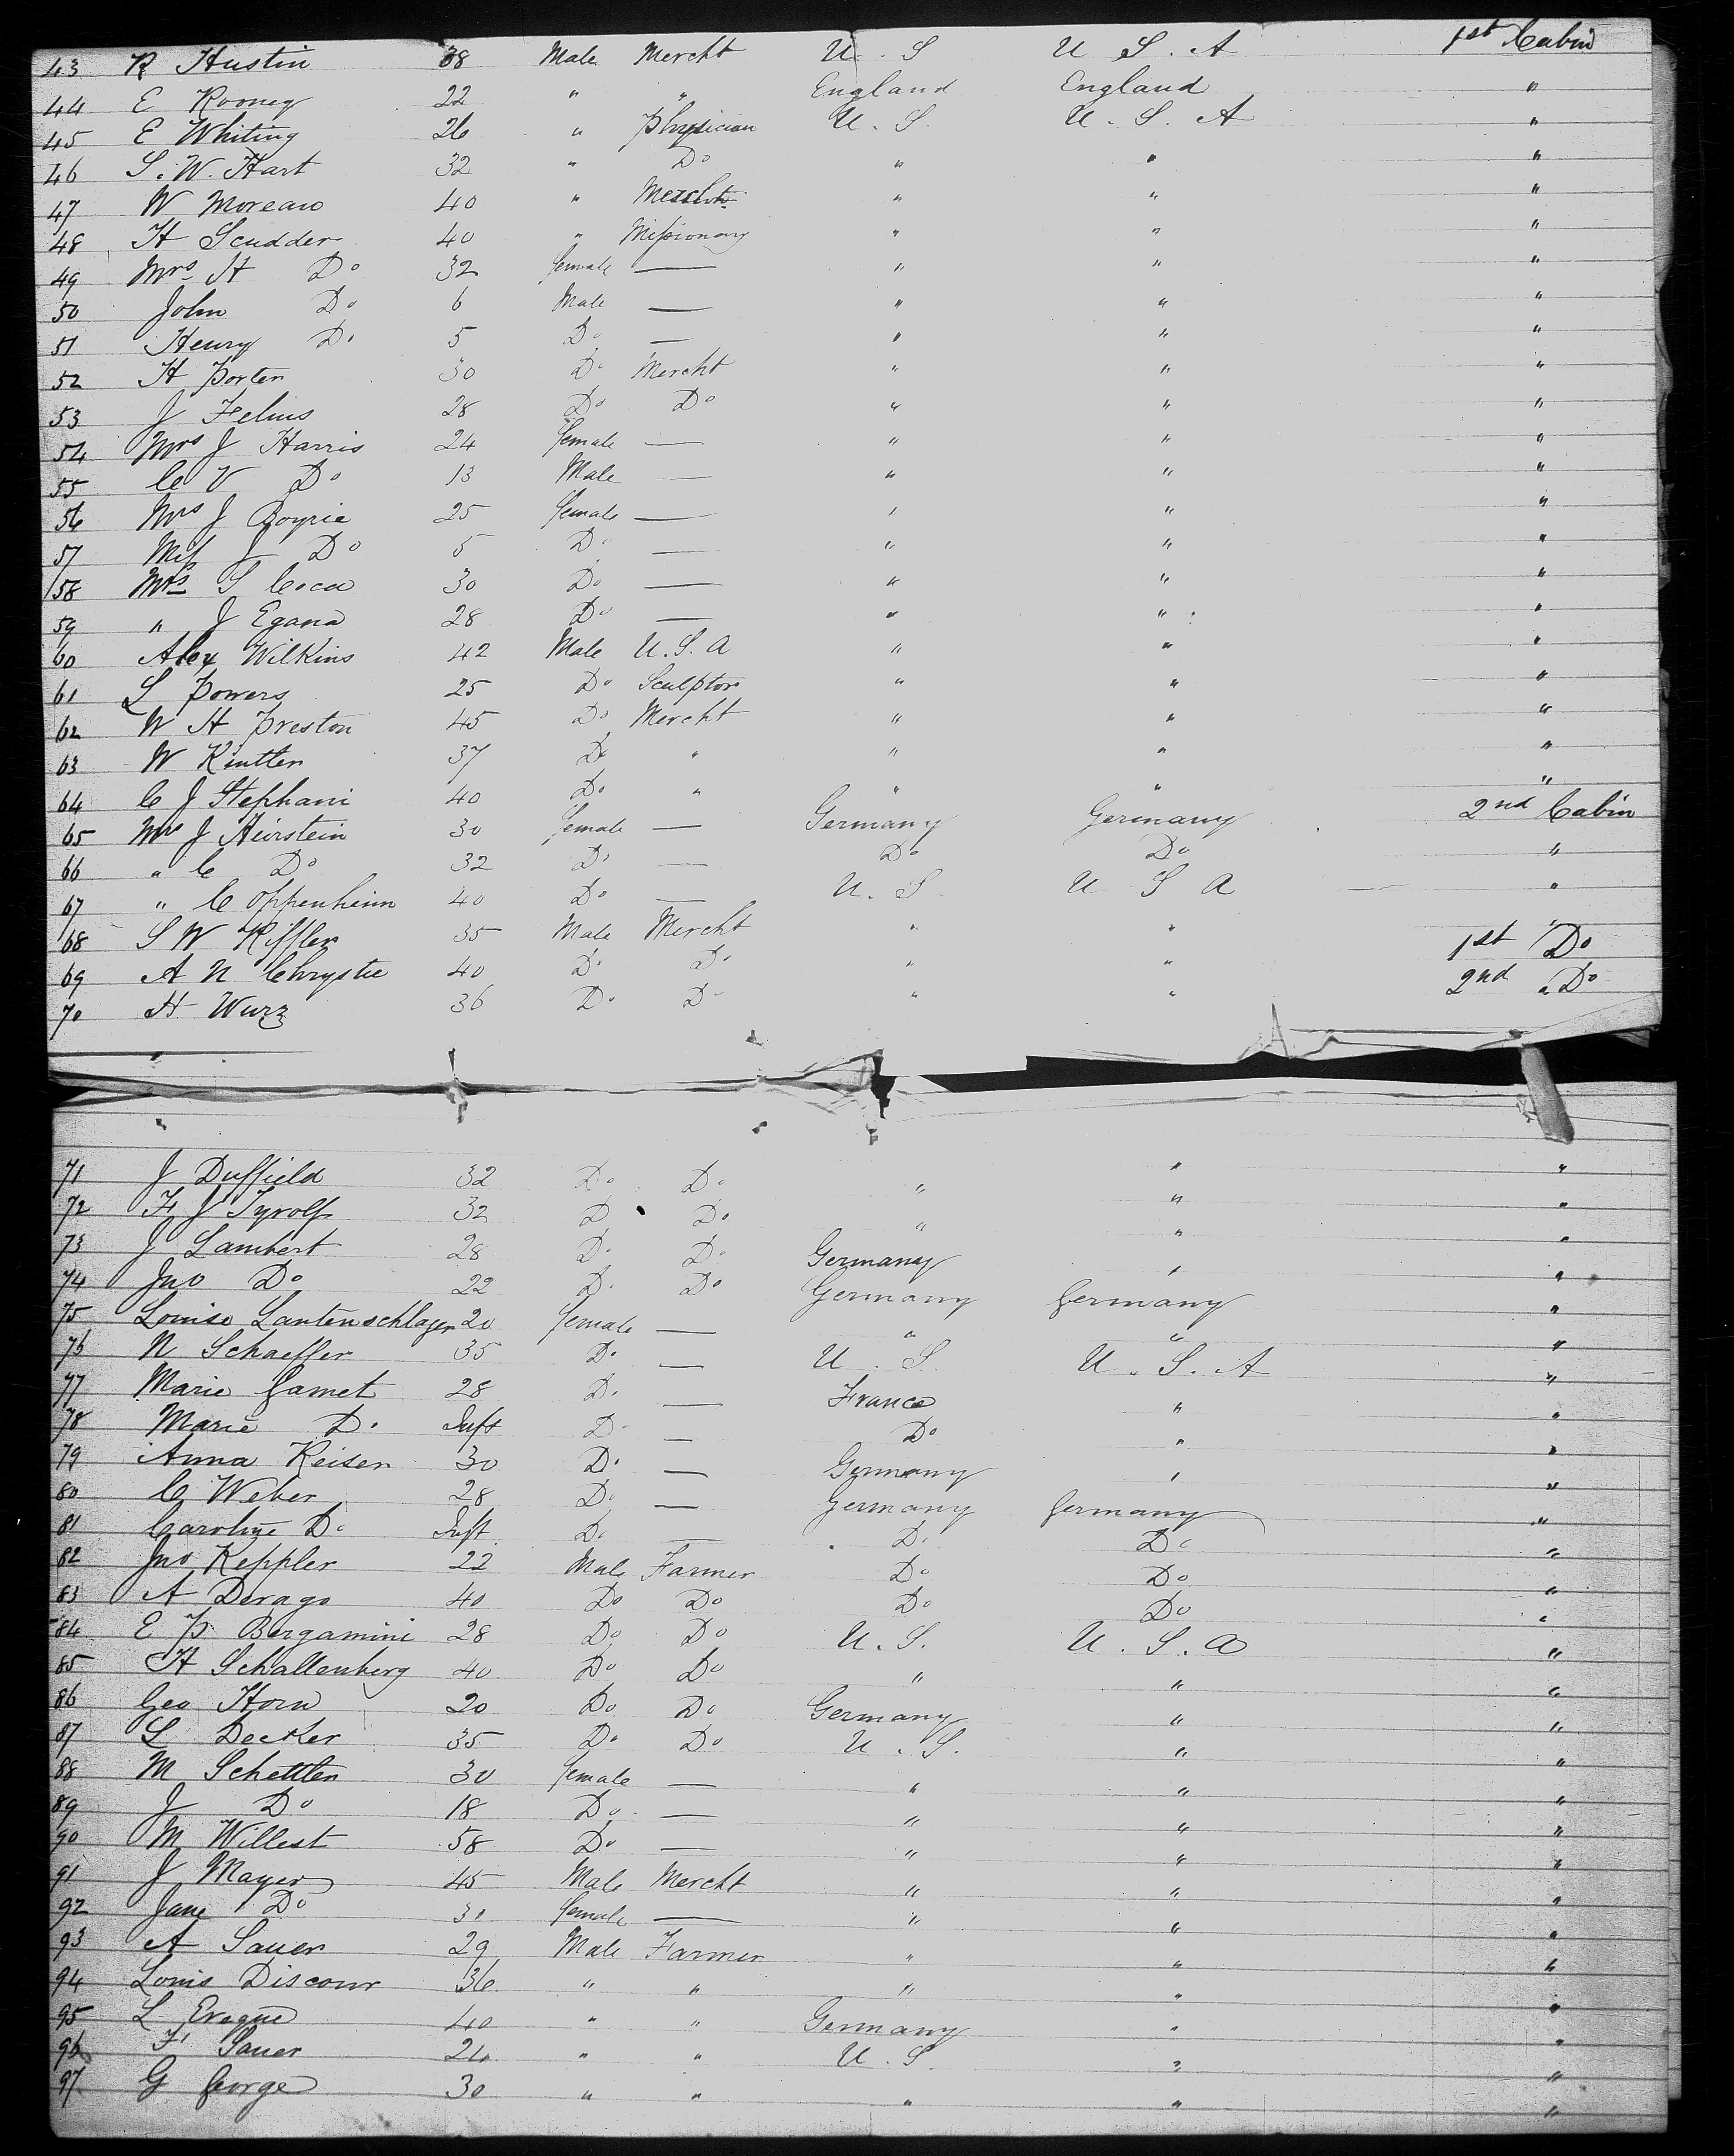 43 R Hustin 38 Male Mercht U. S U S. A 1st Cabin
44 E Rooney 22 " " England England "
45 E Whiting 26 " Physician U. S. U. S. A "
46 S. W. Hart 32 " Do " " "
47 W Moreau 40 " Mercht " " "
48 H Scudder 40 " Missionary " " "
49 Mrs H Do 32 female — " " "
50 John Do 6 Male — " " "
51 Henry Do 5 Do — " " "
52 H Porter 30 Do Mercht " " "
53 J Felius 28 Do Do " " "
54 Mrs J Harris 24 female — " " "
55 C V Do 13 Male — " " "
56 Mrs J Boyrie 25 female — " " "
57 Miss J Do 5 Do — " " "
58 Mrs S Coca 30 Do — " " "
59 " J Egana 28 Do — " " "
60 Alex Wilkins 42 Male U. S. A " " "
61 L Powers 25 Do Sculptor " " "
62 W H Preston 45 Do Mercht " " "
63 W 37 Do " " " "
64 C J Stephani 40 Do " " " "
65 Mrs J Heirstein 30 female — Germany Germany 2nd Cabin
66 " C Do 32 Do — Do Do "
67 " C Oppenheim 40 Do — U. S. U S A "
68 S W Kiffler 35 Male Mercht " " 1st Do
69 A N Chrystie 40 Do Do " " 2nd Do
70 H Wurz 36 Do Do " "
71 J Duffield 32 Do Do " " "
72 F J Tyrolf 32 D Do " " "
73 J Lambert 28 Do Do Germany " "
74 Jno Do 22 Do Do Germany Germany "
75 Louise Lautenschlager 20 female — " " "
76 N Schaeffer 35 Do — U. S. U. S. A "
77 Marie Gamet 28 Do — France " "
78 Marie Do Inft Do — Do " "
79 Anna Reiser 30 Do — Germany " "
80 C Weber 28 Do — Germany Germany "
81 Caroline Do Inft Do — Do Do "
82 Jno Keppler 22 Male Farmer Do Do "
83 A Derago 40 Do Do Do Do "
84 E P Bergamini 28 Do Do U. S. U. S. A "
85 H Schallenberg 40 Do Do " " "
86 Geo Horn 20 Do Do Germany " "
87 L Decker 35 Do Do U. S. " "
88 M Schettler 30 female — " " "
89 J Do 18 Do — " " "
90 M Willest 58 Do — " " "
91 J Mayer 45 Male Mercht " " "
92 Jane Do 30 female — " " "
93 A Sauer 29 Male Farmer " " "
94 Louis Discour 36 " " " " "
95 L Eregue 40 " " Germany " "
96 F Sauer 24 " " U. S. " "
97 G George 30 " " " " "